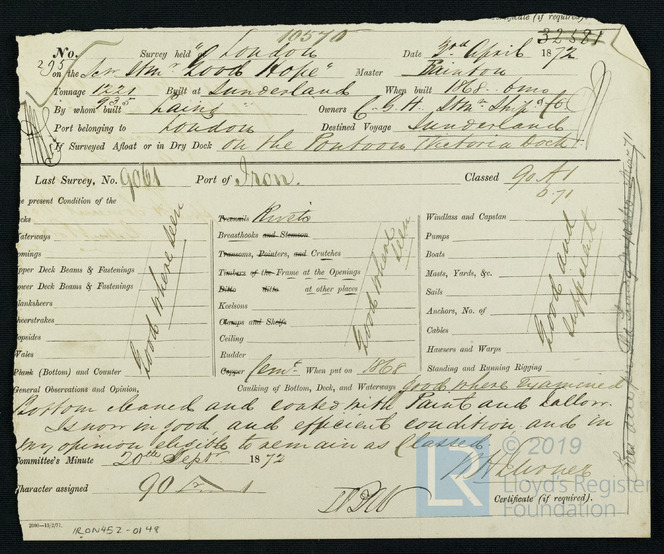 10570
32581
Certificate (if required).
No. Survey held at London Date 3rd April 1872
295 on the Scr Stmr "Good Hope" Master
Tonnage 1221 Built at Sunderland When built 1868. 6mo
935
By whom built Laing Owners C.G.H. Stm Ship Co
Port belonging to London Destined Voyage Sunderland
If Surveyed Afloat or in Dry Dock On the Pontoon Victoria Docks
Last Survey, No. 9061 Port of Iron. Classed 90 A1
5.71
he present Condition of the
ecks
Waterways
omings
pper Deck Beams & Fastenings
ower Deck Beams & Fastenings
lanksheers
heerstrakes
opsides
Wales
Plank (Bottom) and Counter
Good where seen
Treenails Rivets
Breasthooks and Stemson
Transoms, Pointers, and Crutches
Timbers of the Frame at the Openings
Ditto ditto at other places
Keelsons
Clamps and Shelfs
Ceiling
Rudder
Copper Cemt. When put on 1868
Good where seen
Windlass and Capstan
Pumps
Boats
Masts, Yards, &c.
Sails
Anchors, No. of
Cables
Hawsers and Warps
Standing and Running Rigging
Good and sufficient
General Observations and Opinion, Caulking of Bottom, Deck, and Waterways good where examined
Bottom cleaned and coated with Paint and Tallow.
Is now in good and efficient condition, and in
my opinion eligible to remain as Classed
Committee's Minute 20th Septr 1872
Character assigned 90 A 1
Certificate (if required).
2000—13/2/71.
IRON452-0148
LR
© 2019
Lloyd's Register
Foundation